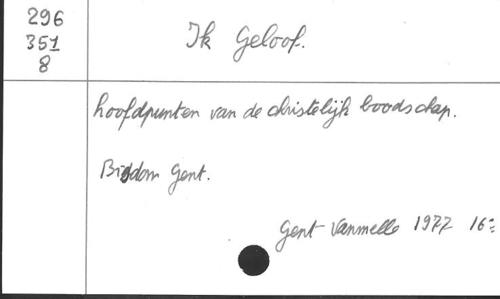 296
351
8
Ik Geloof.
hoofdpunten van de christelijk boodschap.
Bisdom Gent.
Gent Vanmelle 1977 16°